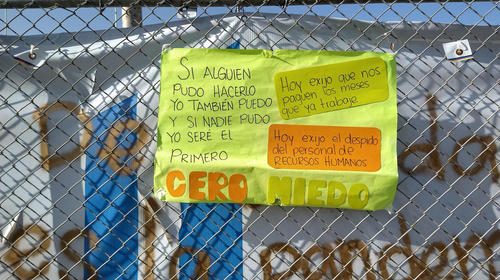 SI ALGUIEN
PUDO HACERLO
YO TAMBIÉN PUEDO
Y SI NADIE PUDO
YO SERE EL
PRIMERO
Hoy exijo que nos
paguen los meses
que ya trabaje.
Hoy exijo el despido
del personal de
RECURSOS HUMANOS
CERO MIEDO